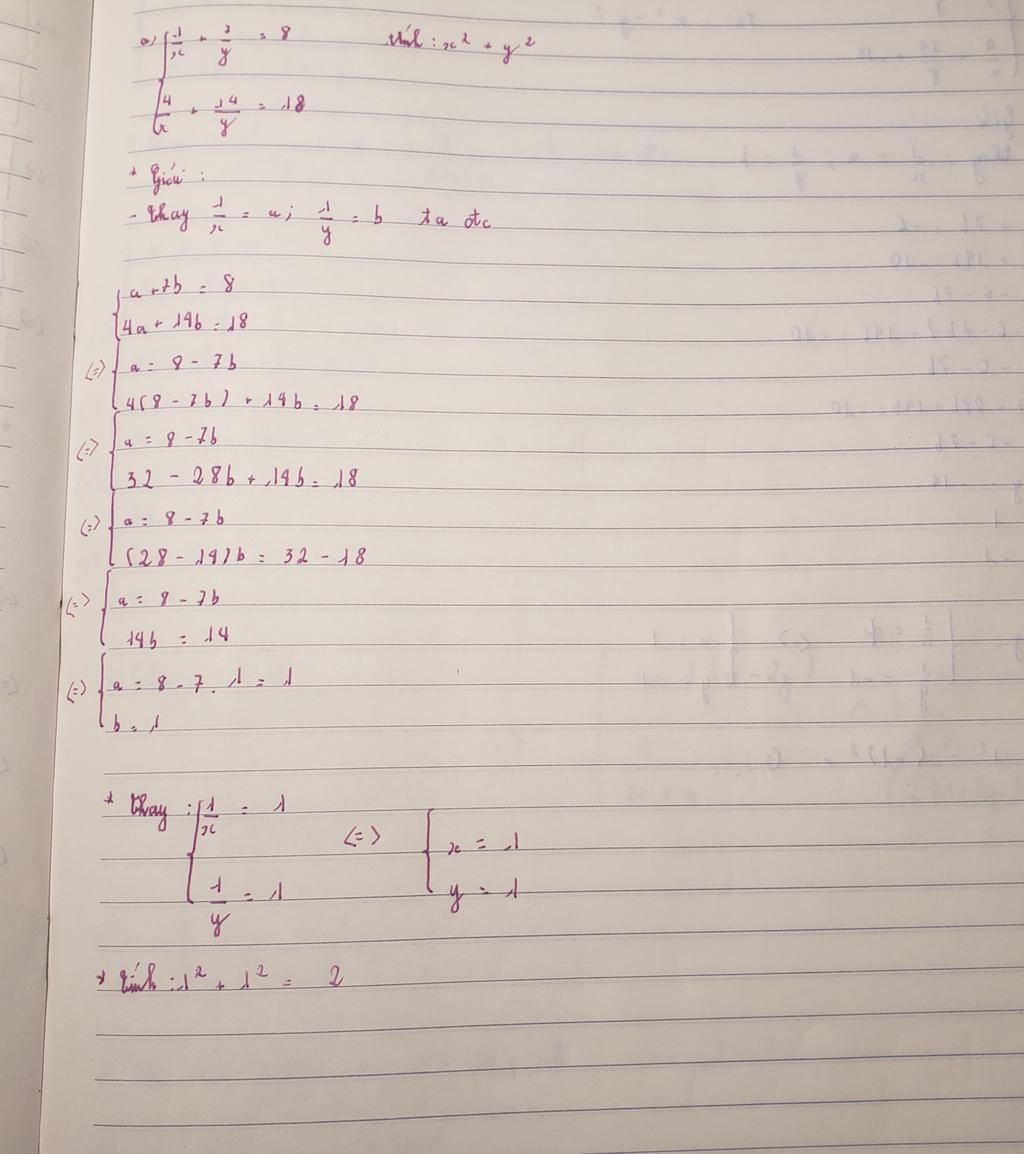 a) { 1/x + 7/y = 8 Tính : x² + y²
{ 4/x + 14/y = 18
* Giải :
- Thay 1/x = a ; 1/y = b ta đc
{ a + 7b = 8
4a + 14b = 18
(=) { a = 8 - 7b
4(8 - 7b) + 14b = 18
(=) { a = 8 - 7b
32 - 28b + 14b = 18
(=) { a = 8 - 7b
(28 - 14)b = 32 - 18
(=) { a = 8 - 7b
14b = 14
(=) { a = 8 - 7 . 1 = 1
b = 1
* Thay : { 1/x = 1 (=) { x = 1
1/y = 1 y = 1
* Tính : 1² + 1² = 2